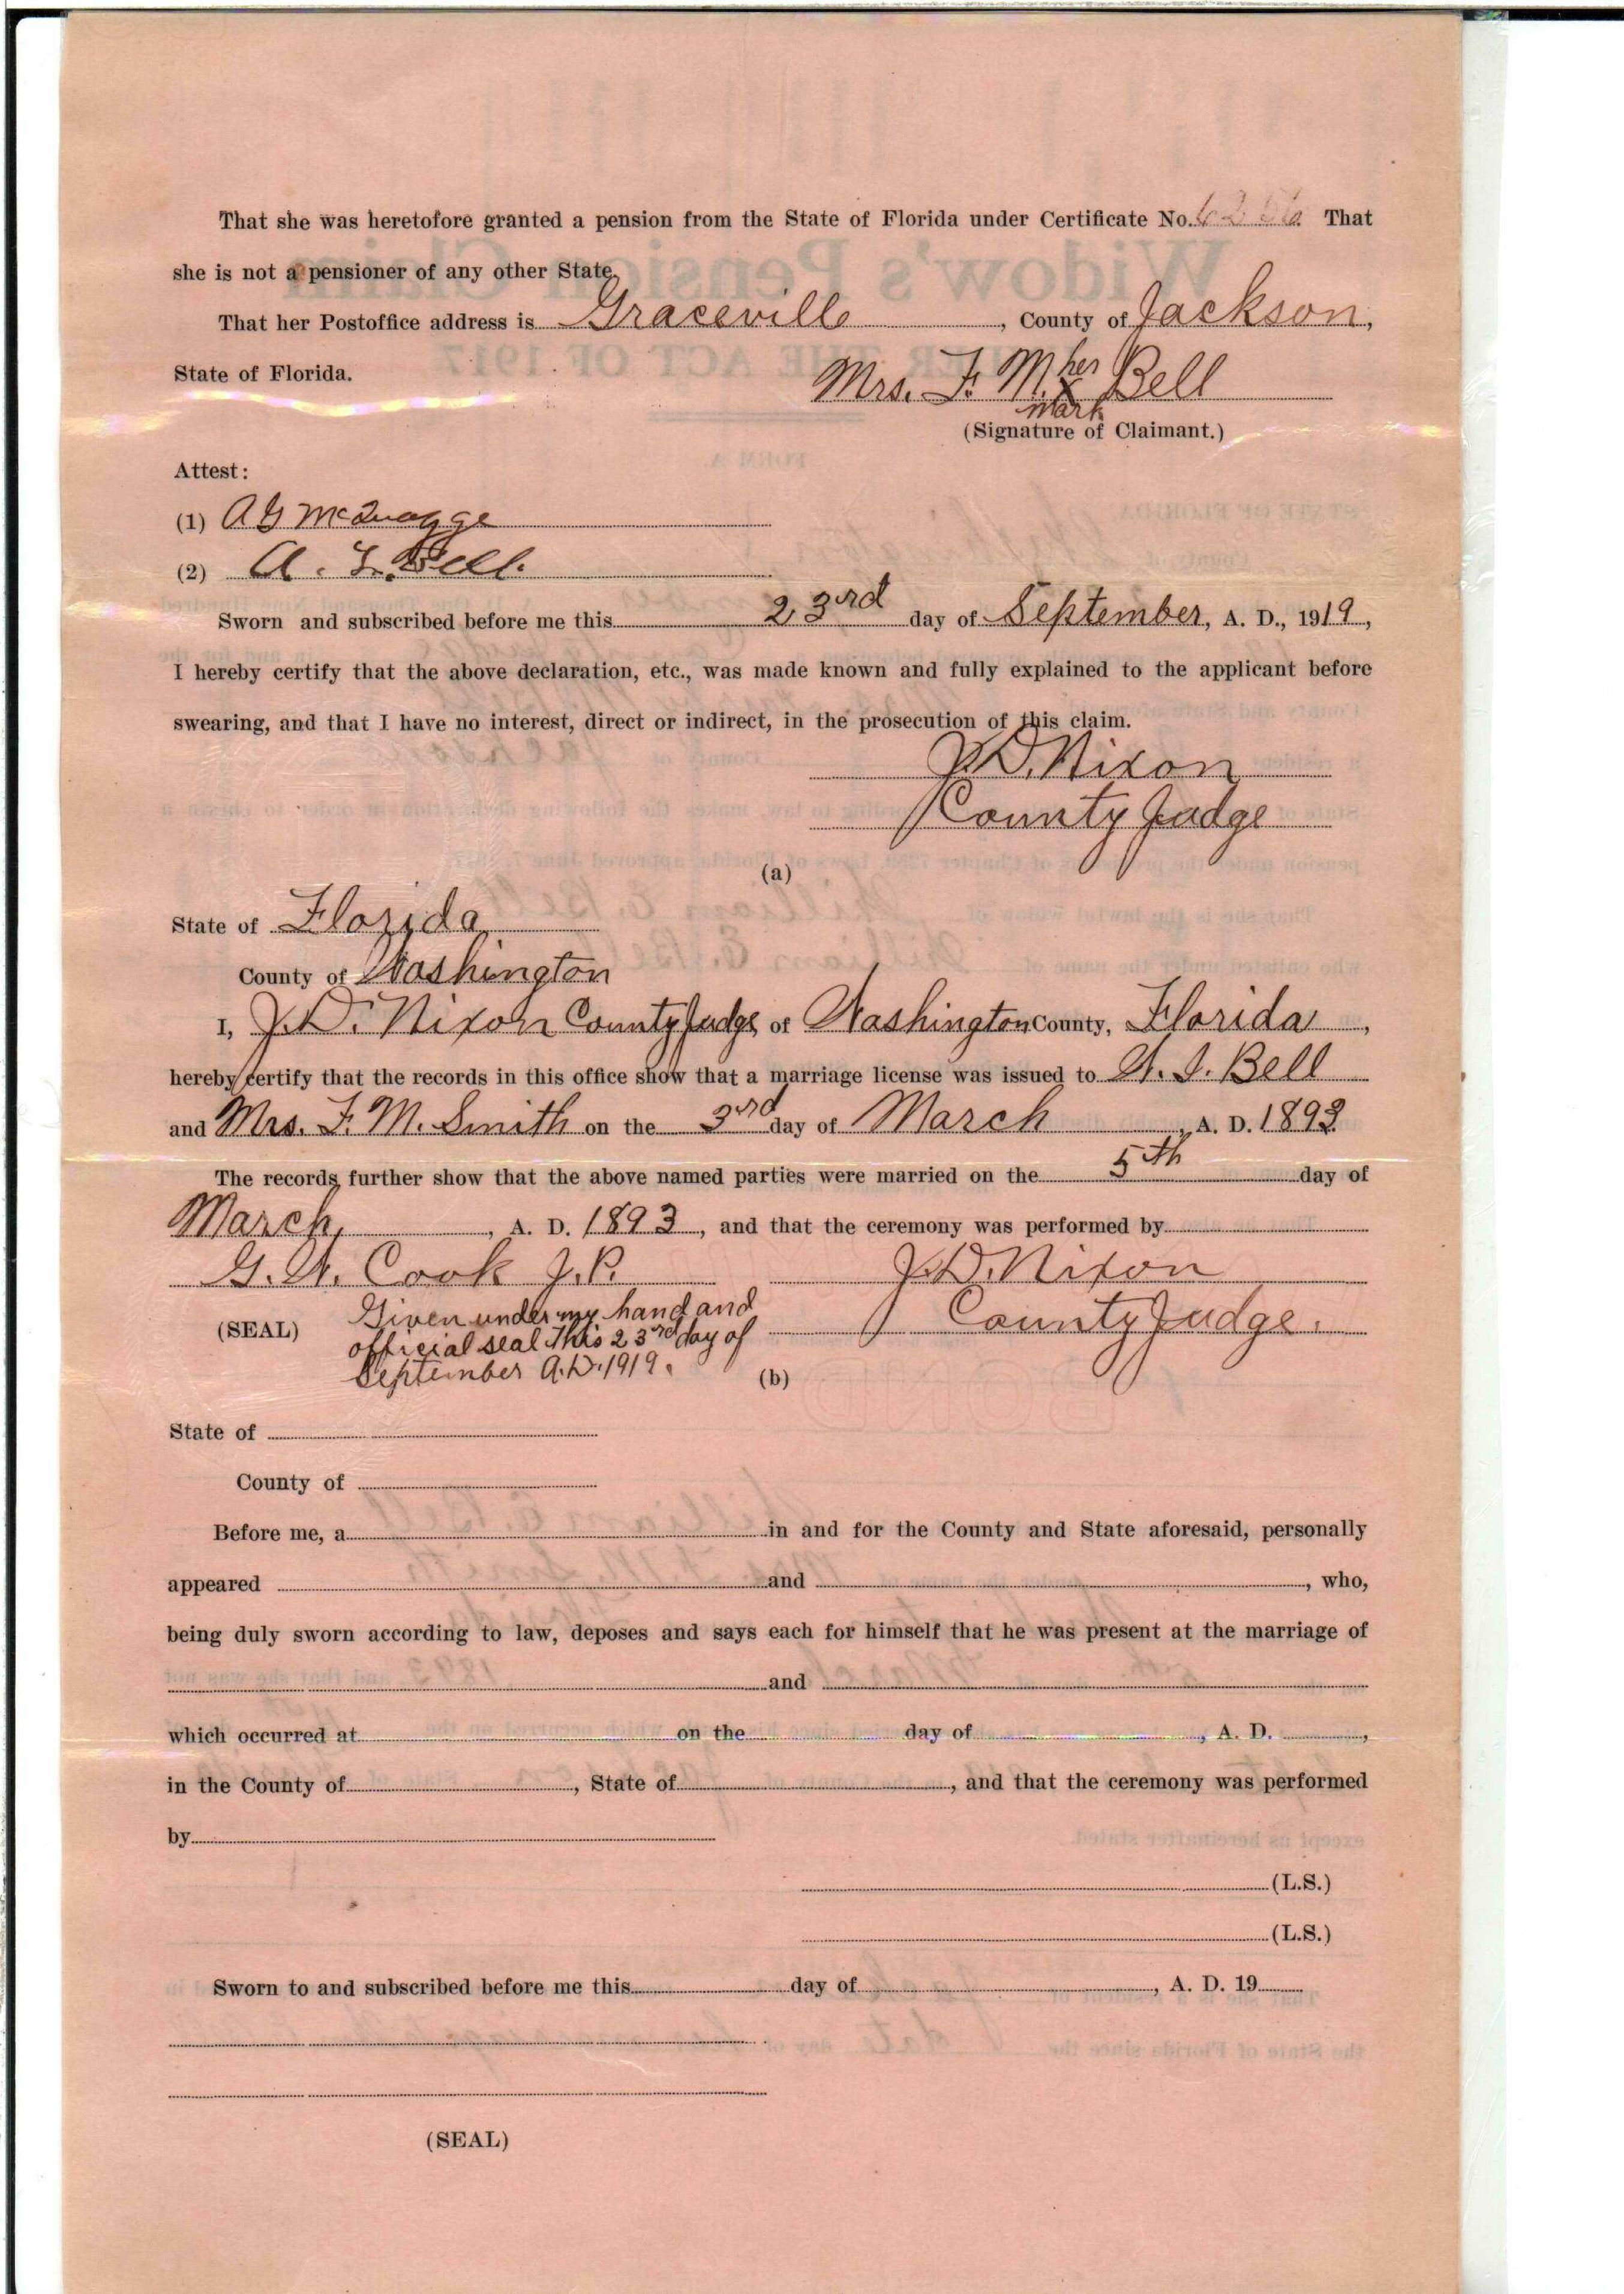 That she was heretofore granted a pension from the State of Florida under Certificate No. That
she is not a pensioner of any other State.
That her Postoffice address is Graceville, County of Jackson,
State of Florida.
Mrs. F. M. her x mark Bell
(Signature of Claimant.)
Attest:
(1) A G McQuagge
(2) A. L. Bell.
Sworn and subscribed before me this 23rd day of September, A. D., 1919,
I hereby certify that the above declaration, etc., was made known and fully explained to the applicant before
swearing, and that I have no interest, direct or indirect, in the prosecution of this claim.
J. D. Nixon
County Judge
(a)
State of Florida
County of Washington
I, J. D. Nixon County Judge of Washington County, Florida,
hereby certify that the records in this office show that a marriage license was issued to Bell
and Mrs. F. M. Smith on the 3rd day of March, A. D. 1893
The records further show that the above named parties were married on the 5th day of
March, A. D. 1893, and that the ceremony was performed by
G. W. Cook J.P. J. D. Nixon
(SEAL) Given under my hand and County Judge.
official seal this 23rd day of
September A.D. 1919.
(b)
State of
County of
Before me, a in and for the County and State aforesaid, personally
appeared and , who,
being duly sworn according to law, deposes and says each for himself that he was present at the marriage of
and
which occurred at on the day of , A. D. ,
in the County of , State of , and that the ceremony was performed
by
(L.S.)
(L.S.)
Sworn to and subscribed before me this day of , A. D. 19
(SEAL)